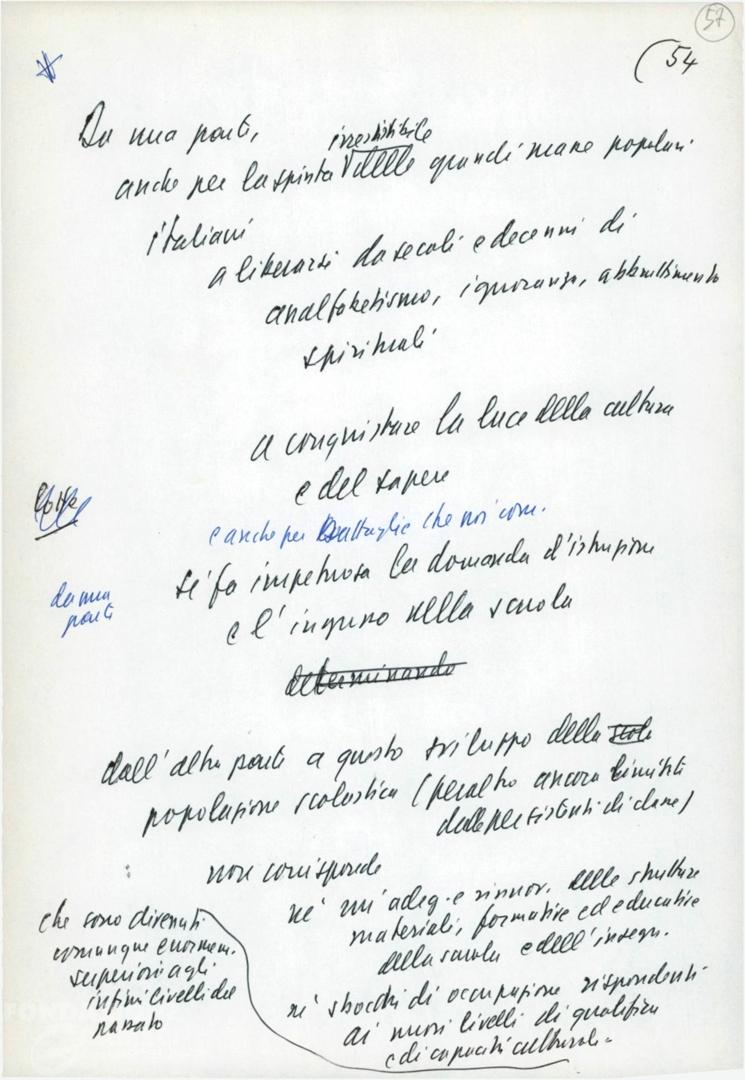 57
(54
Da una parte,
irresistibile
anche per la spinta delle grandi masse popolari
italiani
a liberarsi da secoli e decenni di
analfabetismo, ignoranza, abbruttimento
spirituali
a conquistare la luce della cultura
e del sapere
e anche per battaglie che noi com.
si fa impetuosa la domanda d'istruzione
da una
parte
e l'ingresso nella scuola
determinando
dall'altra parte a questo sviluppo della
popolazione scolastica (peraltro ancora limitata
di classe)
non corrisponde
né un'adeg. e rinnov. delle strutture
materiali, formative ed educative
della scuola e dell'insegn.
né sbocchi di occupazione rispondenti
ai nuovi livelli di qualifica
e di capacità culturale
che sono divenuti
comunque enormem.
superiori agli
infimi livelli del
passato
FONDA